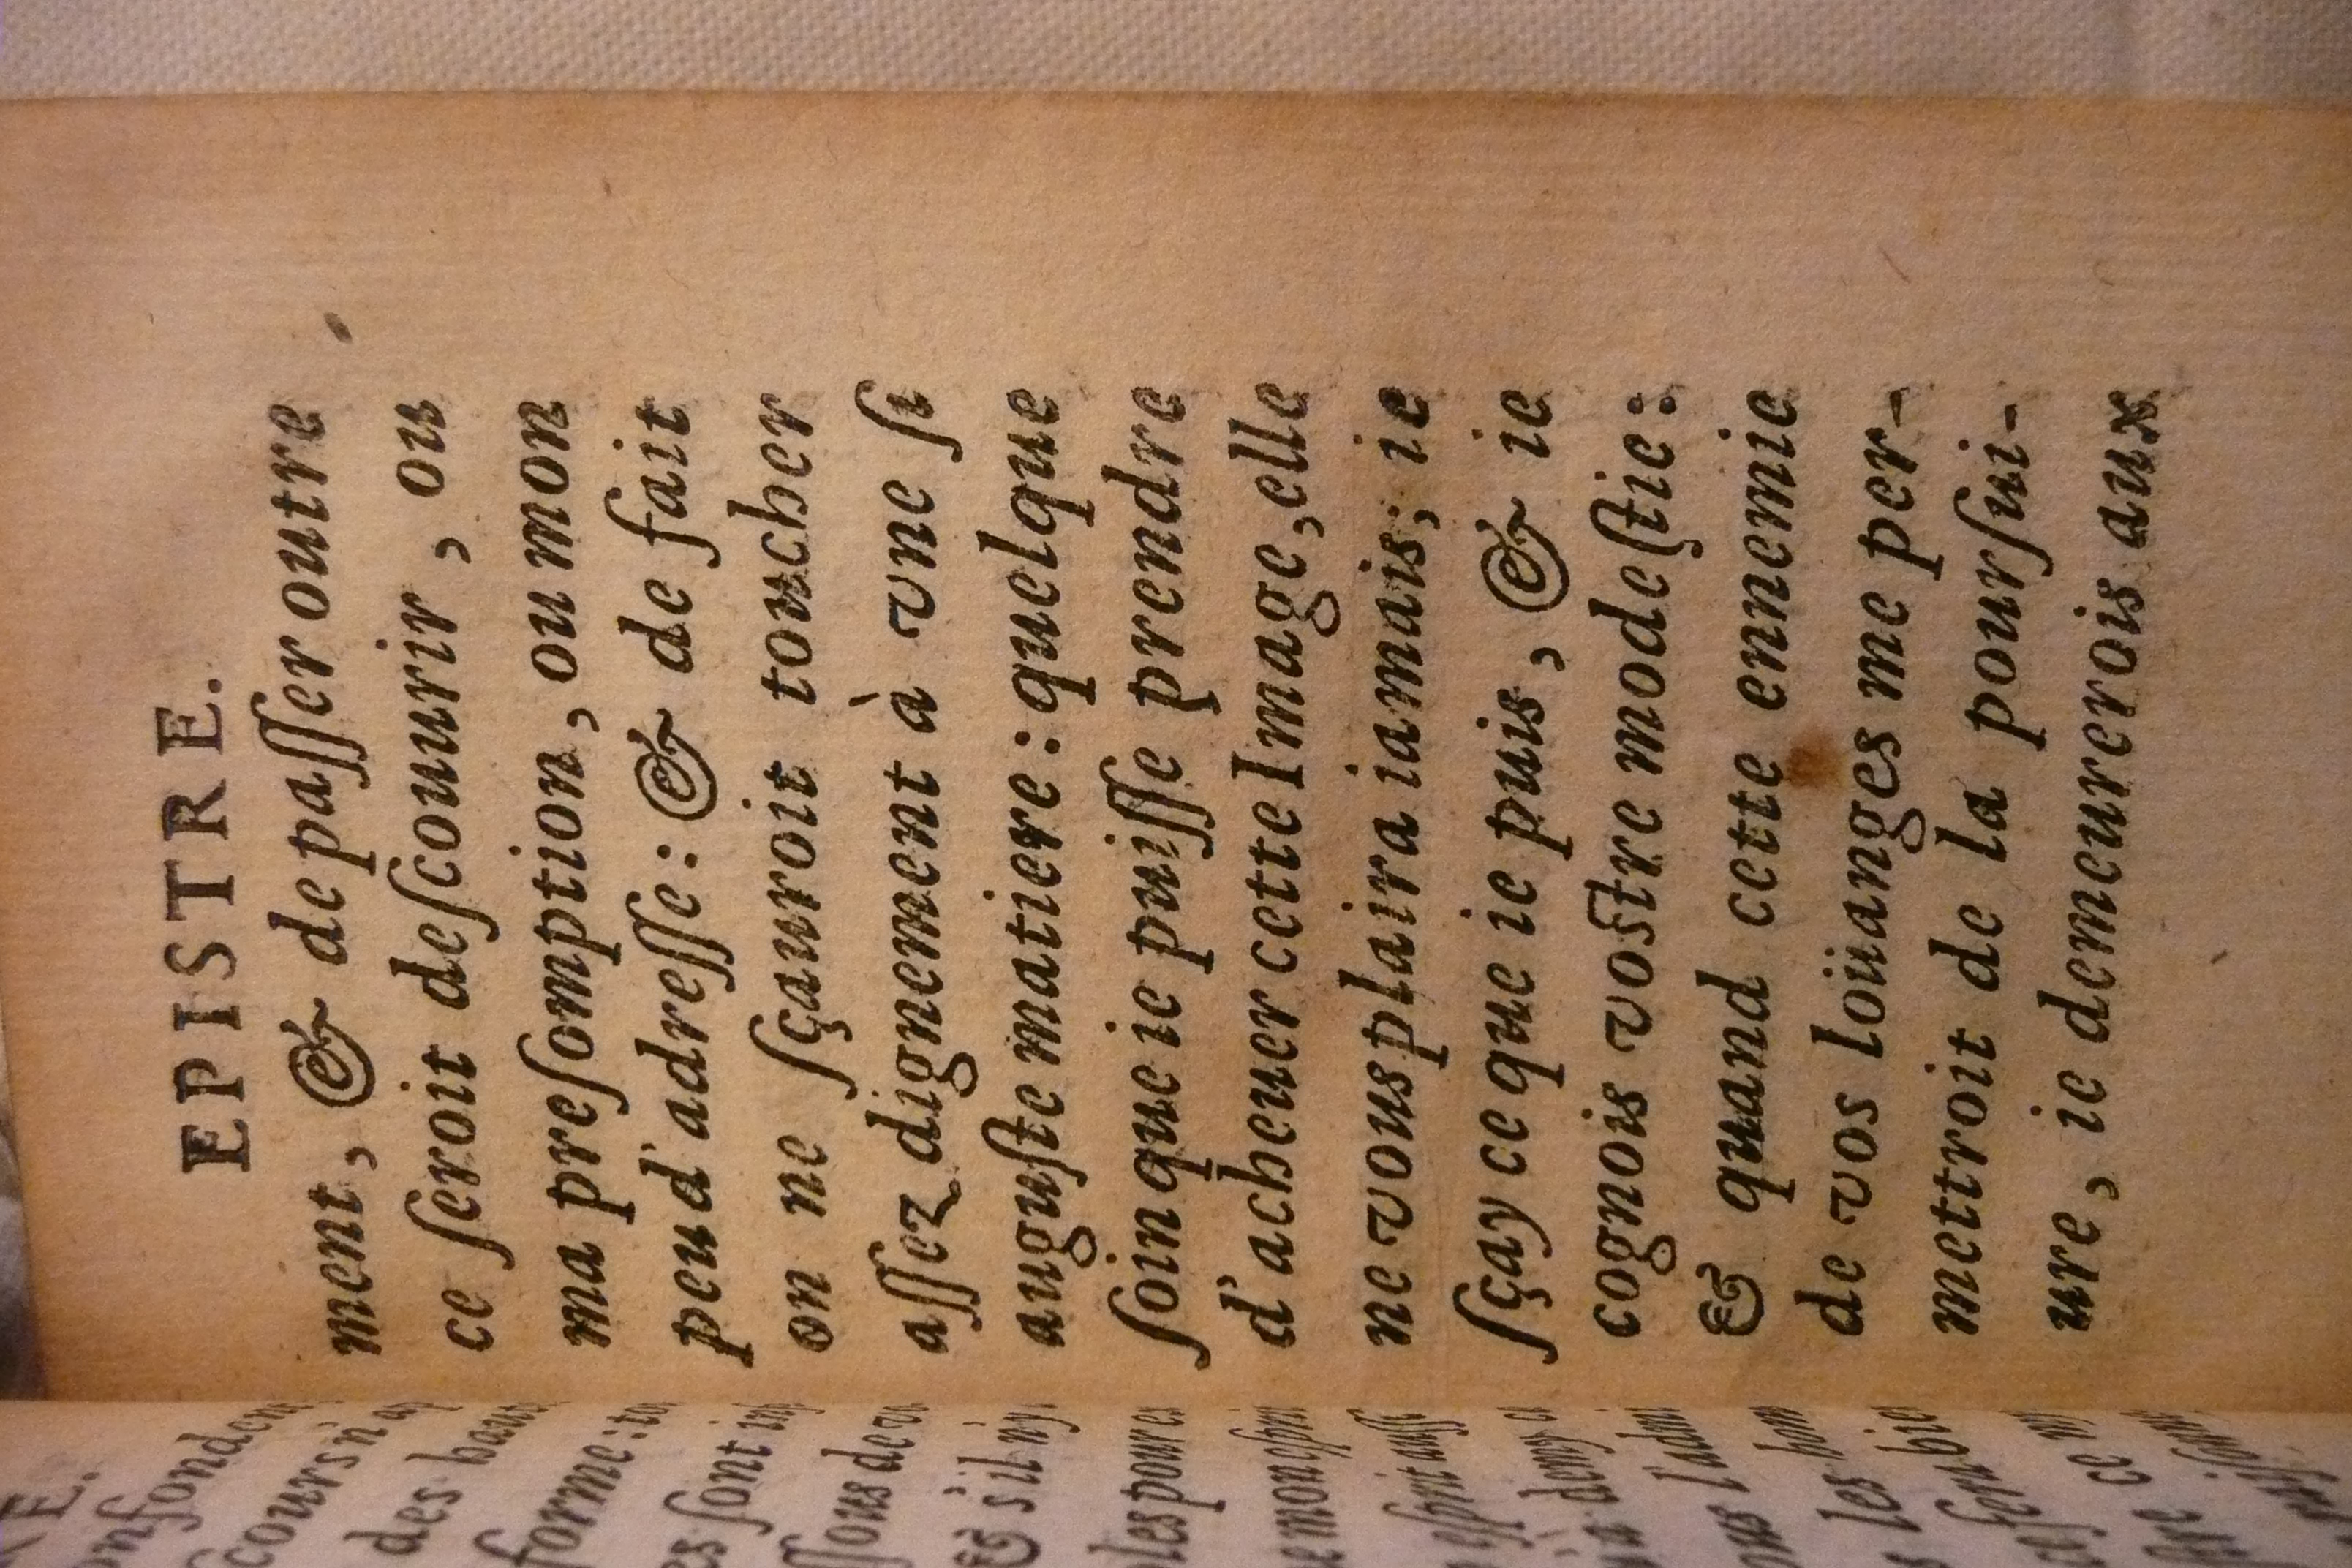 EPISTRE.
ment, & de paſſer outre
ce ſeroit deſcouurir, ou
ma preſomption, ou mon
peu d'adreſſe: & de fait
on ne ſçauroit toucher
aſſez dignement à vne ſi
auguſte matiere: quelque
ſoin que ie puiſſe prendre
d'acheuer cette Image, elle
ne vous plaira iamais; ie
ſçay ce que ie puis, & ie
cognois voſtre modeſtie:
& quand cette ennemie
de vos loüanges me per-
mettroit de la pourſui-
ure, ie demeurerois aux
cours n'
des
forme:
ſont
de
& s'il n'y
les pour
mon
eſprit
demy
les
ce